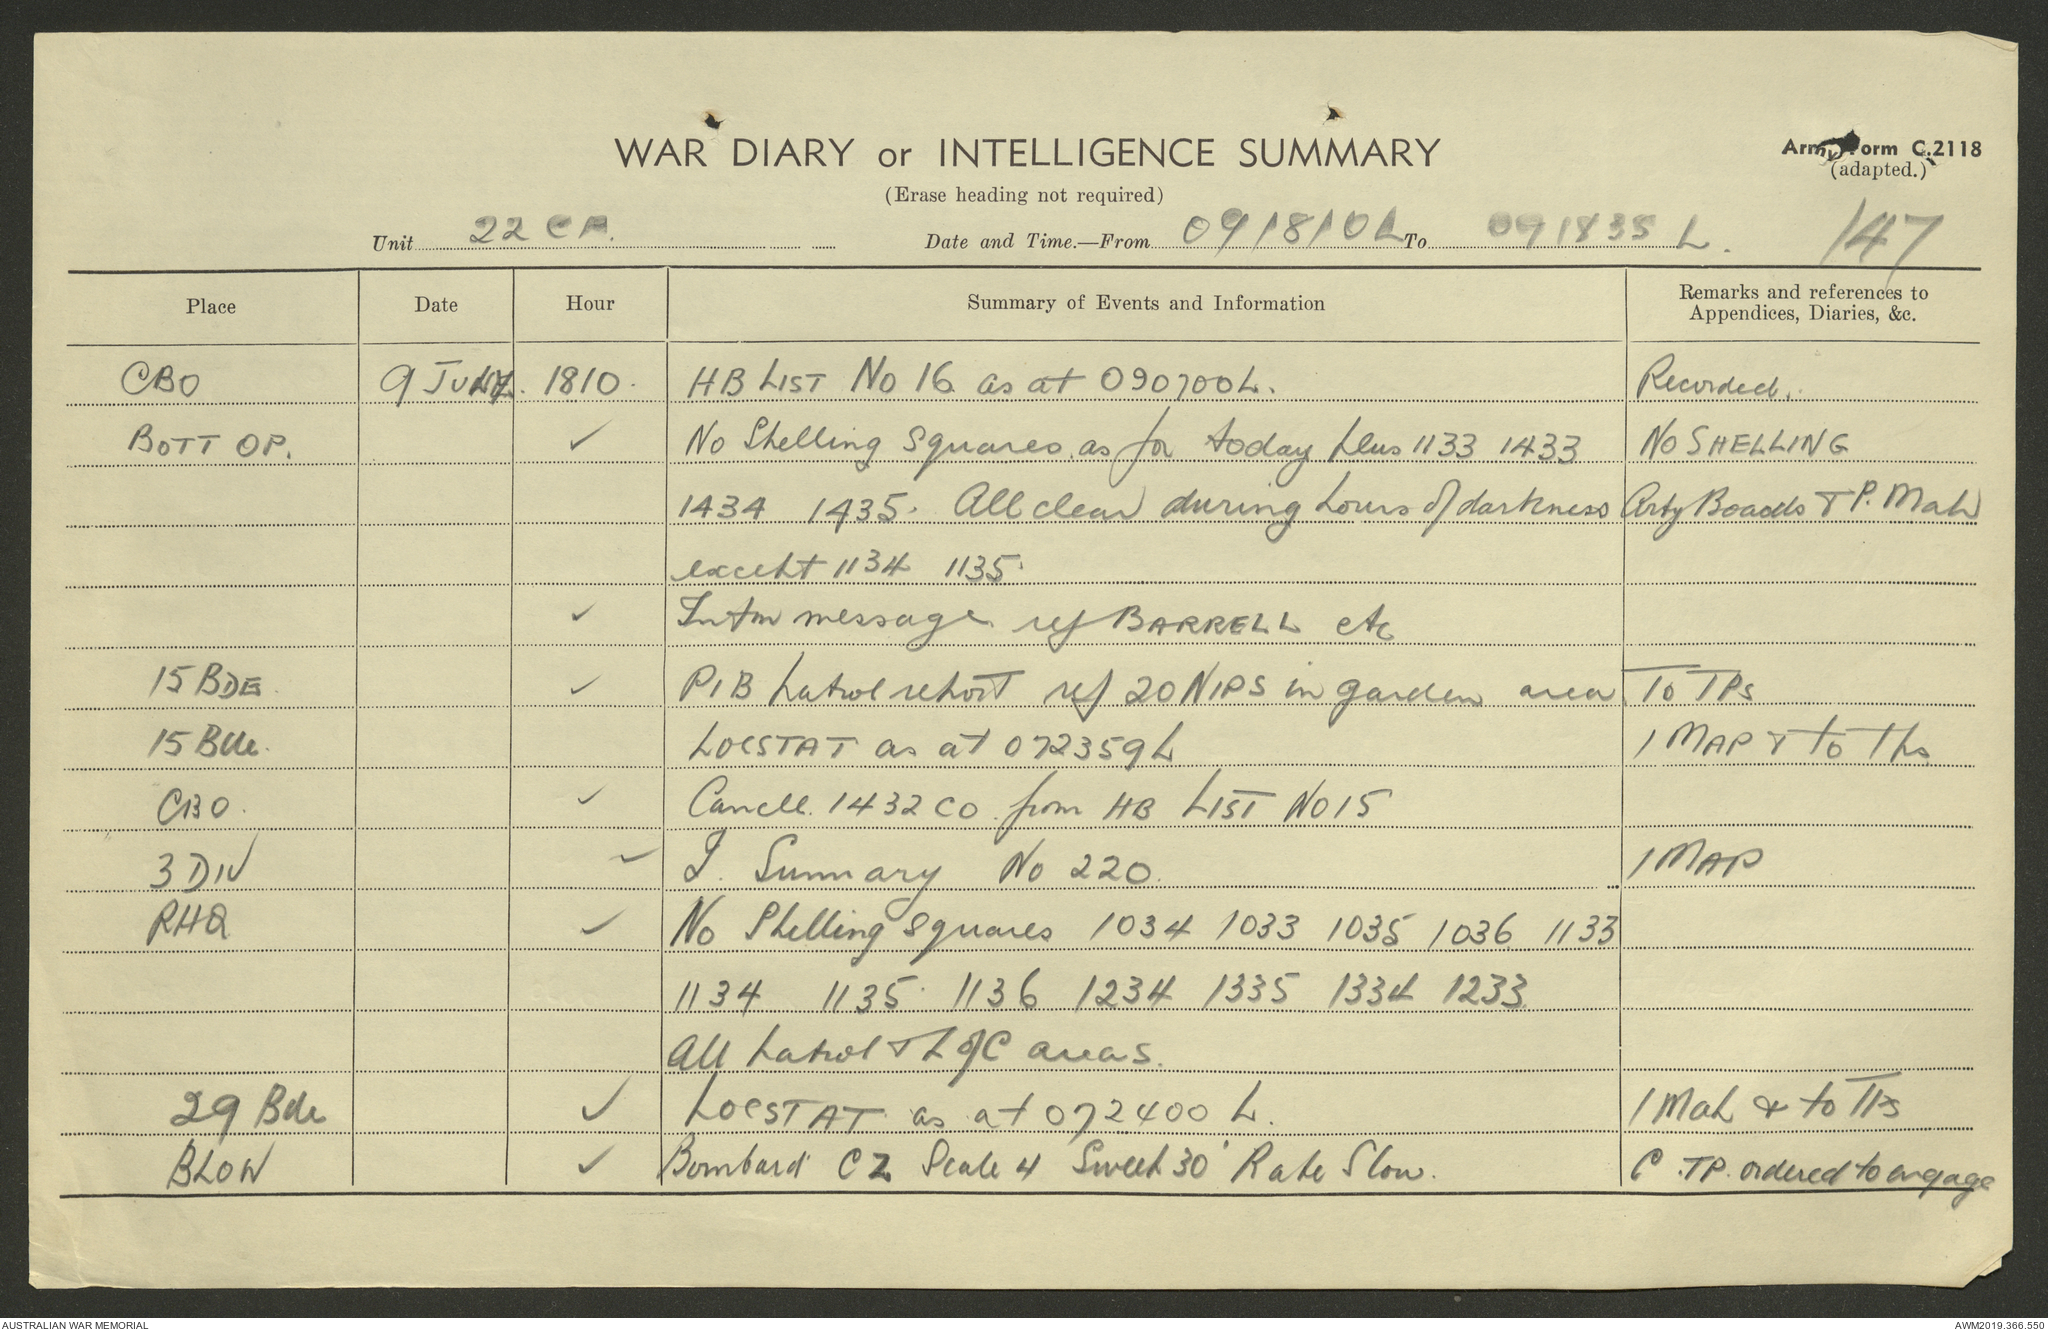 WAR DIARY or INTELLIGENCE SUMMARY
(Erase heading not required)
Army Form C.2118
(adapted.)
Unit 22 CA. Date and Time.—From 091810L To 091835 L. 147
Place Date Hour Summary of Events and Information Remarks and references to Appendices, Diaries, &c.
CBO 9 JUN 1810. HB LIST No 16 as at 090700L. Recorded.
BOTT OP. ✓ No Shelling Squares as for today plus 1133 1433 NO SHELLING
1434 1435. All clear during hours of darkness Arty Boards & P. Map
except 1134 1135.
✓ Intm message ref BARRELL etc
15 BDE ✓ PIB patrol report ref 20 NIPS in garden area. To TPs
15 Bde. LOCSTAT as at 072359L 1 MAP & to Tps
CBO. ✓ Cancel 1432 CO from HB LIST NO 15
3 DIV ✓ I. Summary No 220. 1 MAP
RHQ ✓ No Shelling Squares 1034 1033 1035 1036 1133
1134 1135 1136 1234 1335 1334 1233.
All patrol & L of C areas.
29 Bde ✓ LOCSTAT as at 072400 L. 1 Map & to Tps
BLOW ✓ Bombard CZ Scale 4 Sweep 30' Rate Slow. C TP. ordered to engage
AUSTRALIAN WAR MEMORIAL
AWM2019.366.550